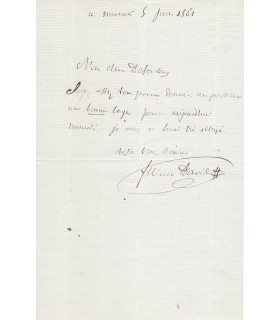 ce mercredi 5 juin 1861
Mon cher
Soyez assez bon pour donner au porteur
une bonne loge pour aujourd'hui
mercredi : je vous en serai très obligé
Votre bien dévoué
Félicien David